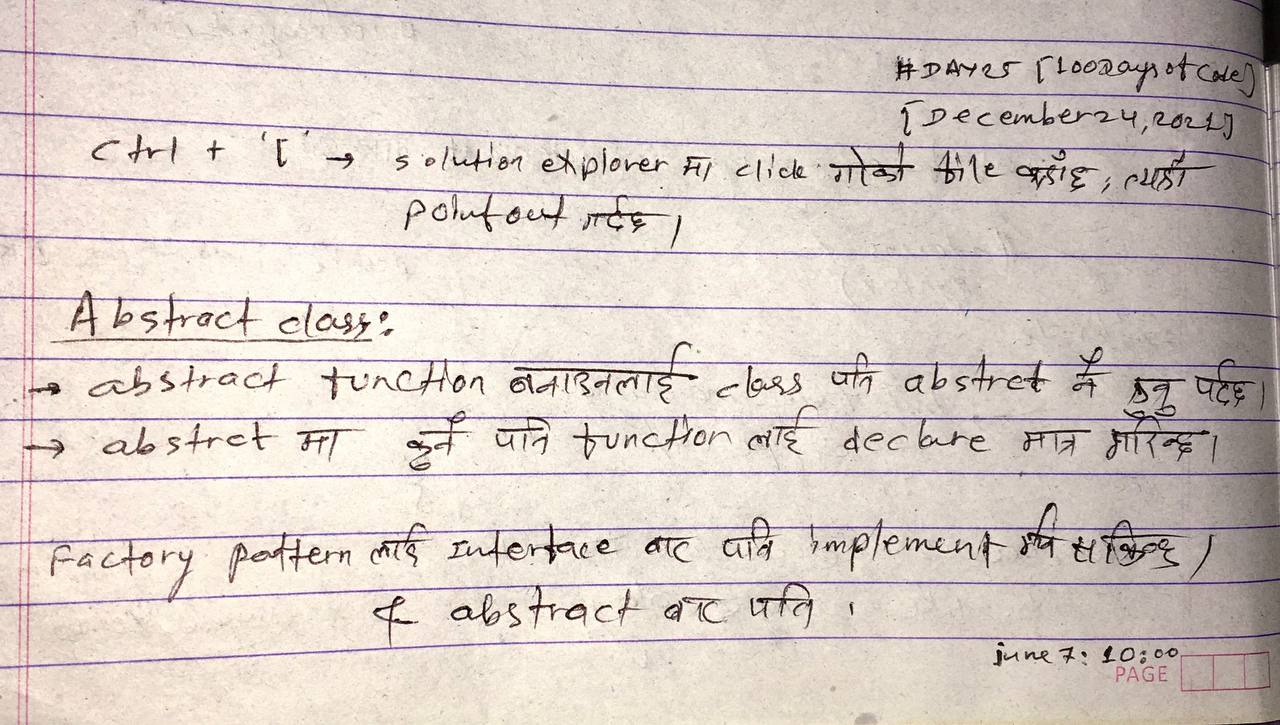 #DAY25 [100DaysofCode]
[December24,2021]
Ctrl + '[' → solution explorer मा click गरेको file कहाँछ, त्यहाँ
point out गर्दछ।
Abstract class:
→ abstract function बनाउनलाई class पनि abstrct नै हुनु पर्दछ।
→ abstrct मा कुनै पनि function लाई declare मात्र गरिन्छ।
Factory pattern लाई Interface बाट पनि implement गर्न सकिन्छ।
& abstract बाट पनि ।
june 7: 10:00
PAGE